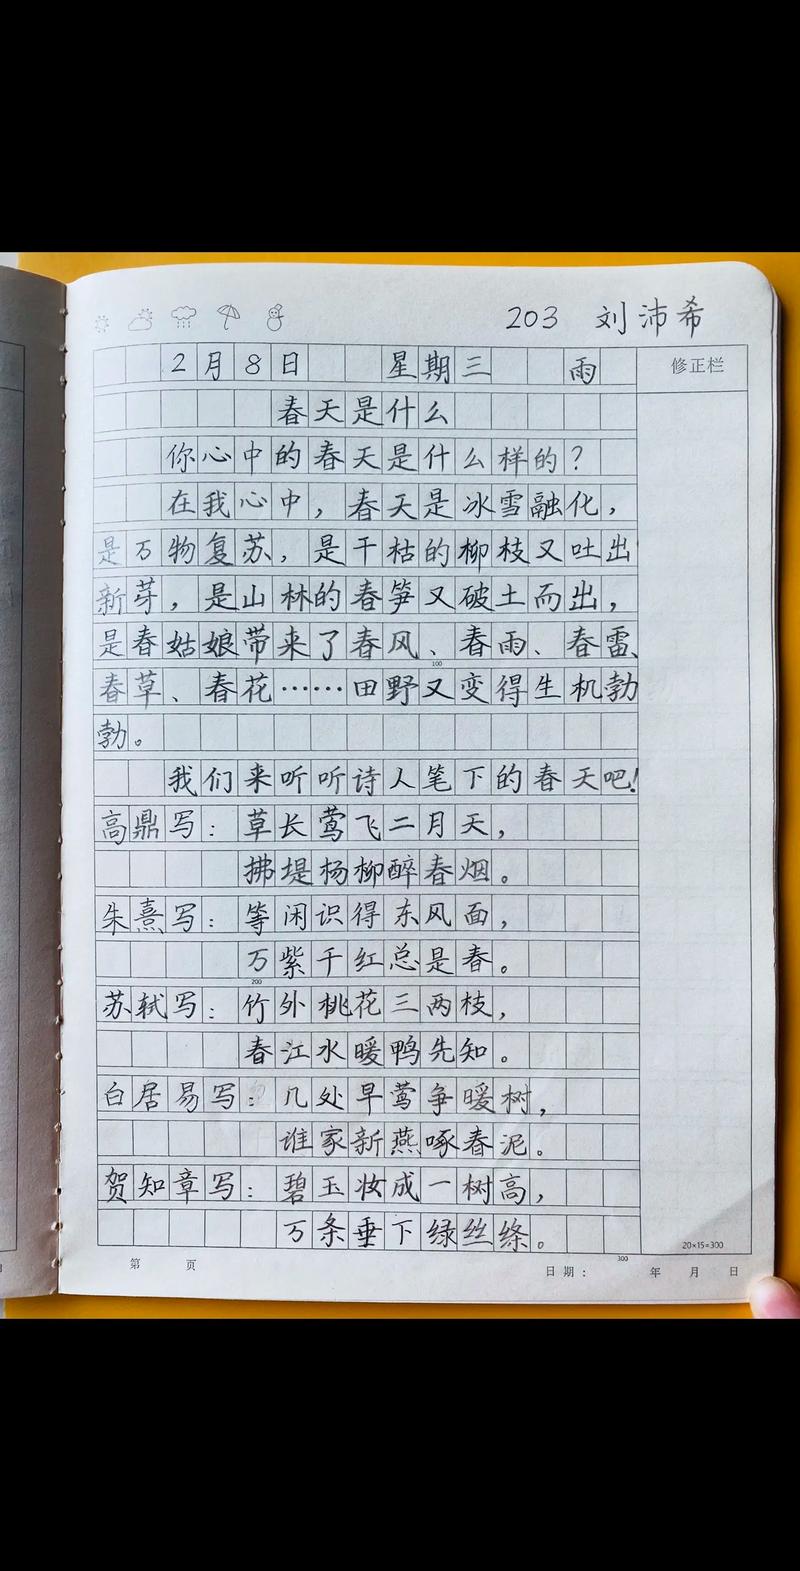 203 刘沛希
2月8日 星期三 雨
修正栏
春天是什么
你心中的春天是什么样的？
在我心中，春天是冰雪融化，
是万物复苏，是干枯的柳枝又吐出
新芽，是山林的春笋又破土而出，
是春姑娘带来了春风、春雨、春雷、
100
春草、春花……田野又变得生机勃
勃。
我们来听听诗人笔下的春天吧！
高鼎写：草长莺飞二月天，
拂堤杨柳醉春烟。
朱熹写：等闲识得东风面，
万紫千红总是春。
200
苏轼写：竹外桃花三两枝，
春江水暖鸭先知。
白居易写：几处早莺争暖树，
谁家新燕啄春泥。
贺知章写：碧玉妆成一树高，
万条垂下绿丝绦。
20×15=300
300
第 页
日期： 年 月 日